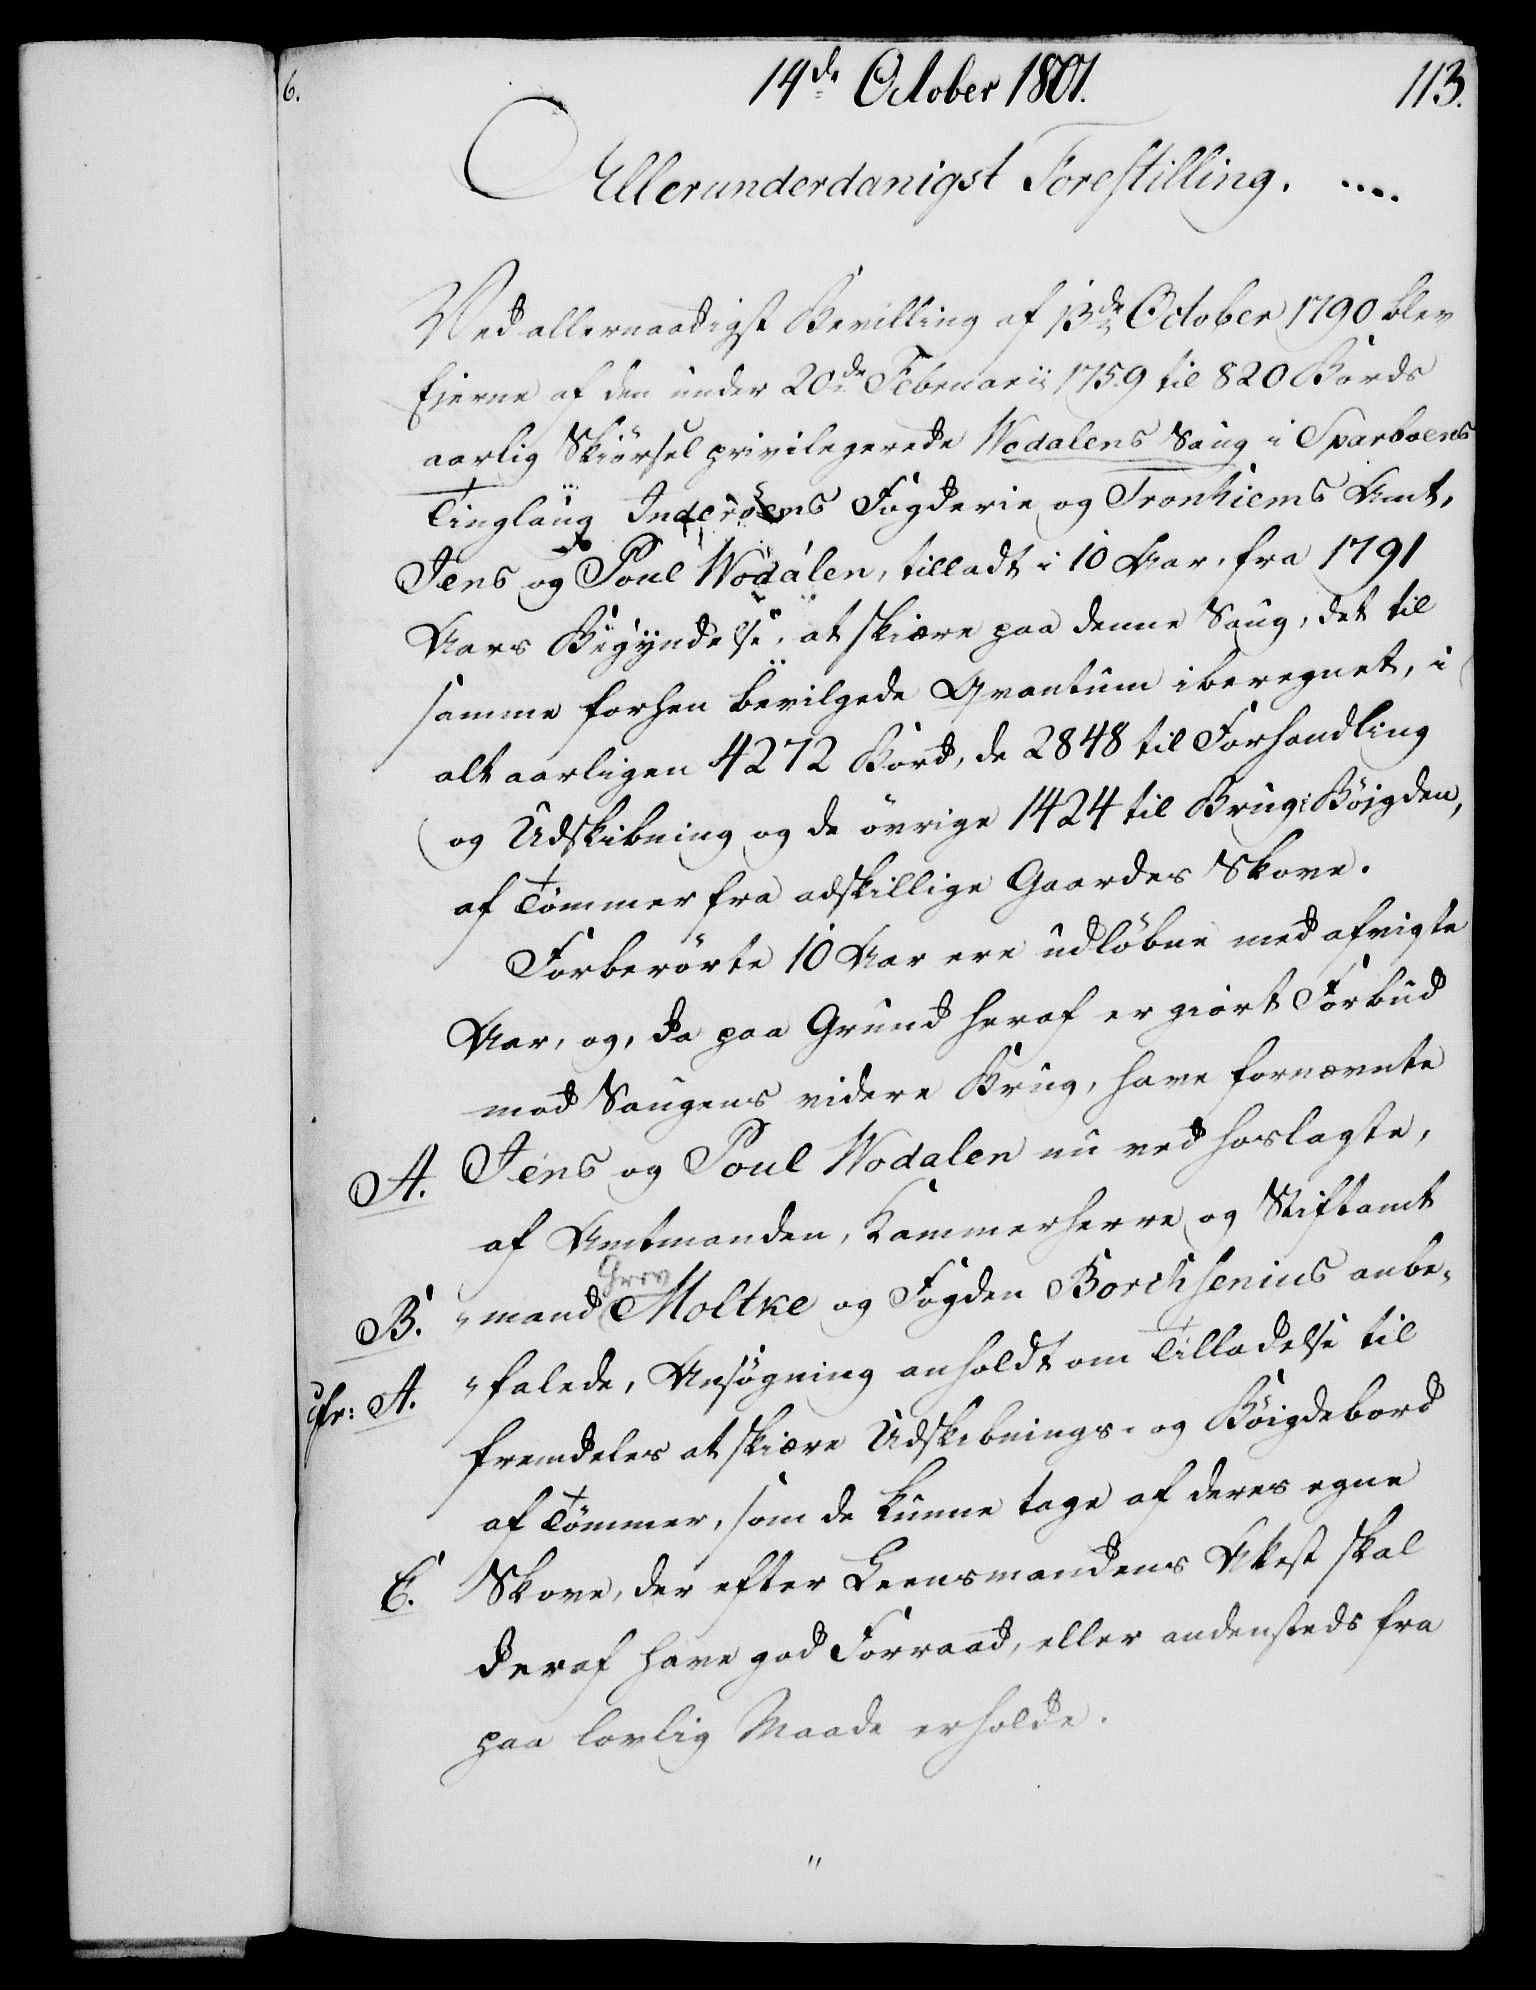 6.
14de October 1801.
113.
Allerunderdanigst Forestilling. ....
Ved allernaadigst Bevilling af 13de October 1790 blev
Eierne af den under 20de Februarii 1759 til 820 Bords
aarlig Skiørsel privilegerede Wodalens Saug i Sparboens
Tinglaug Inderøens Fogderie og Tronhiems Amt,
Jens og Poul Wodalen, tilladt i 10 Aar, fra 1791
Aars Begyndelse, at skiære paa denne Saug, det til
samme forhen bevilgede Qvantum iberegnet, i
alt aarligen 4272 Bord, de 2848 til Forhandling
og Udskibning og de øvrige 1424 til Brug i Bøigden,
af Tømmer fra adskillige Gaardes Skove.
Forberørte 10 Aar ere udløbne med afvigte
Aar, og, da paa Grund heraf er giort Forbud
mod Saugens videre Brug, have fornævnte
A. Jens og Poul Wodalen nu ved hoslagte,
af Amtmanden, Kammerherre og Stiftamt
Grev
B. "mand Moltke og Fogden Borchsenius anbe-
cfr: A. "falede, Ansøgning anholdt om Tilladelse til
fremdeles at skiære Udskibnings- og Bøigdebord
af Tømmer, som de kunne tage af deres egne
C. Skove, der efter Leensmandens Attest skal
deraf have god Forraad, eller andensteds fra
paa lovlig Maade erholde.
"